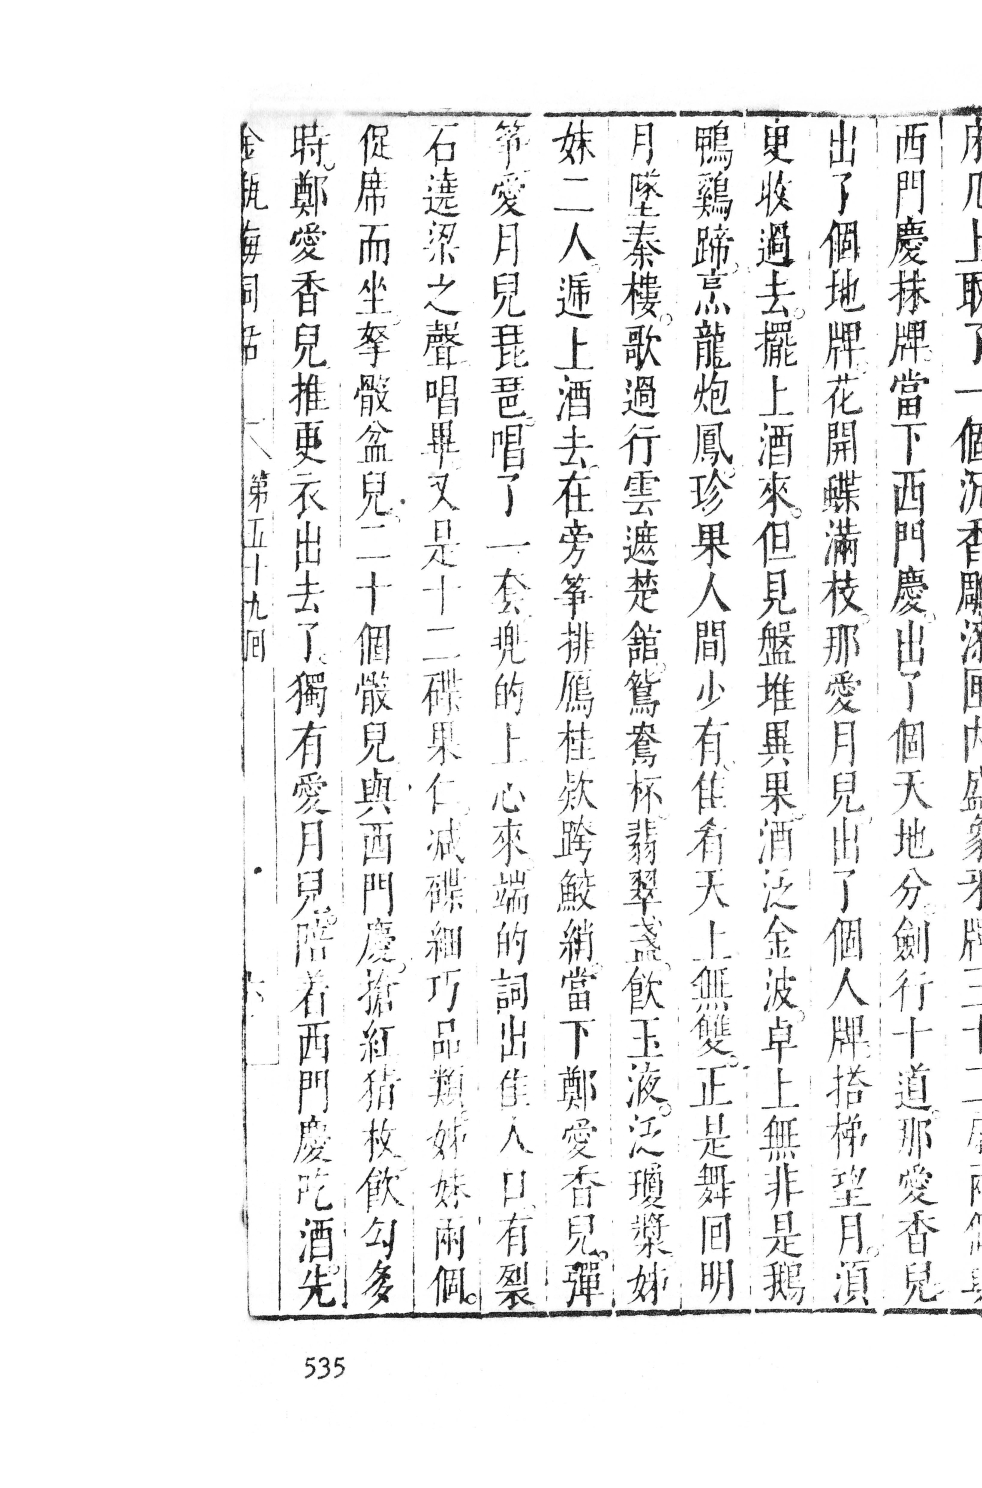 床几上取了一個沉香雕漆匣內盛象牙牌三十二扇兩個與
西門慶抹牌當下西門慶出了個天地分劍行十道那愛香兒
出了個地牌花開蝶滿枝那愛月兒出了個人牌搭梯望月湏
㬰收過去擺上酒來但見盤堆異果酒泛金波卓上無非是鵝
鴨鷄蹄烹龍炮鳳珍果人間少有佳肴天上無雙正是舞回明
月墜秦樓歌過行雲遮楚館鴛鴦杯翡翠盞飲玉液泛瓊漿姊
妹二人遞上酒去在旁箏排鴈柱欵跨鮫綃當下鄭愛香兒彈
箏愛月兒琵琶唱了一套兜的上心來端的詞出佳人口有裂
石遶梁之聲唱畢又是十二碟果仁减碟細巧品類姊妹兩個
促席而坐拏骰盆兒二十個骰兒與西門慶搶紅猜枚飲勾多
時鄭愛香兒推更衣出去了獨有愛月兒陪着西門慶吃酒先
金瓶梅詞話 第五十九囘 六
535